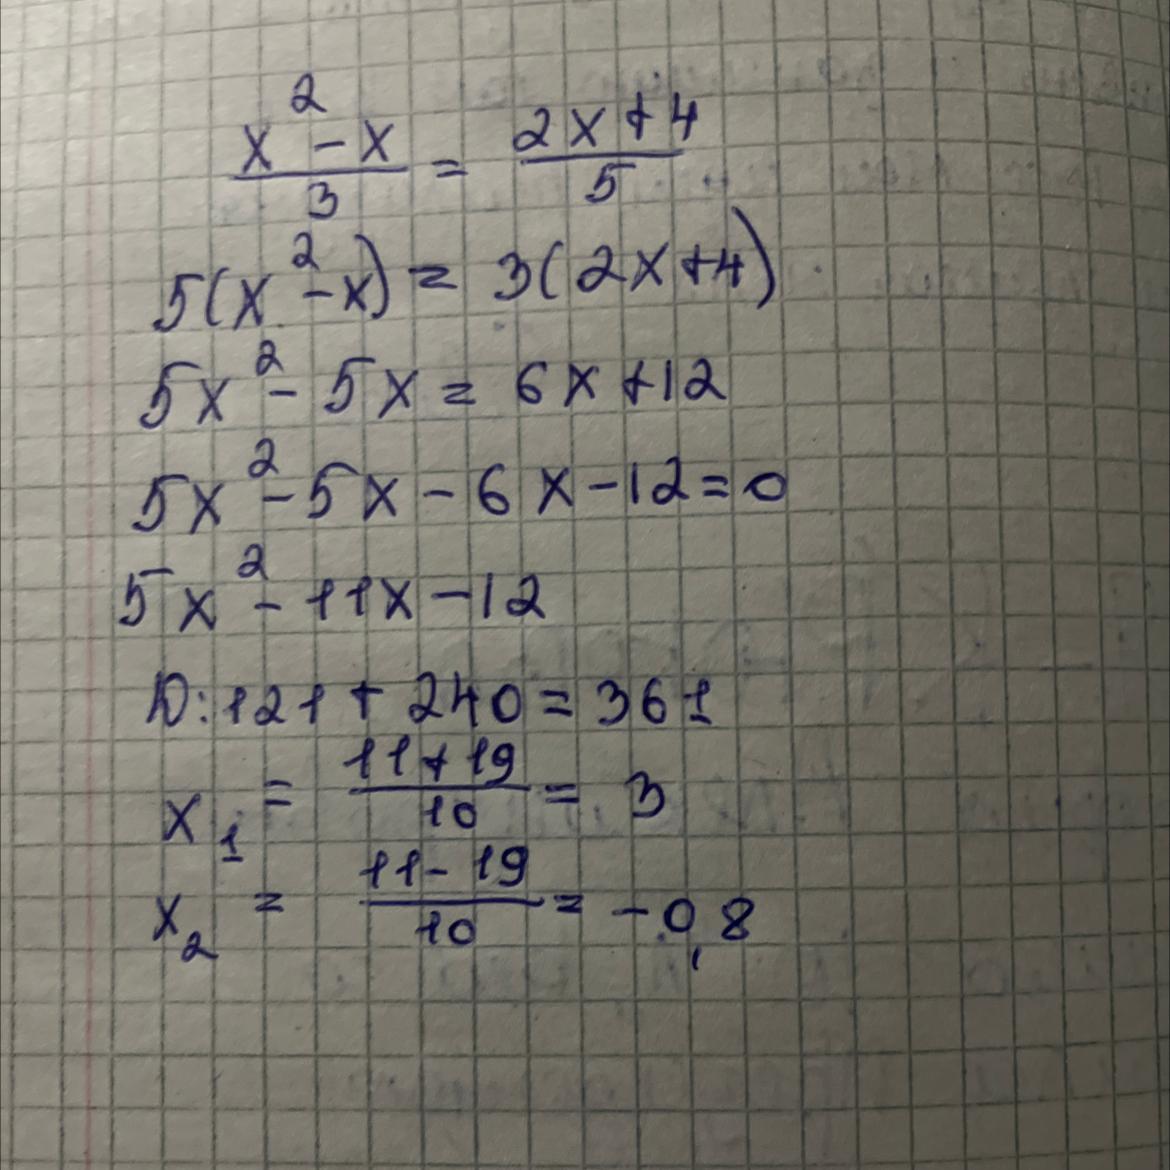 x² - x / 3 = 2x + 4 / 5
5(x² - x) = 3(2x + 4)
5x² - 5x = 6x + 12
5x² - 5x - 6x - 12 = 0
5x² - 11x - 12
D: 121 + 240 = 361
x₁ = 11 + 19 / 10 = 3
x₂ = 11 - 19 / 10 = -0,8